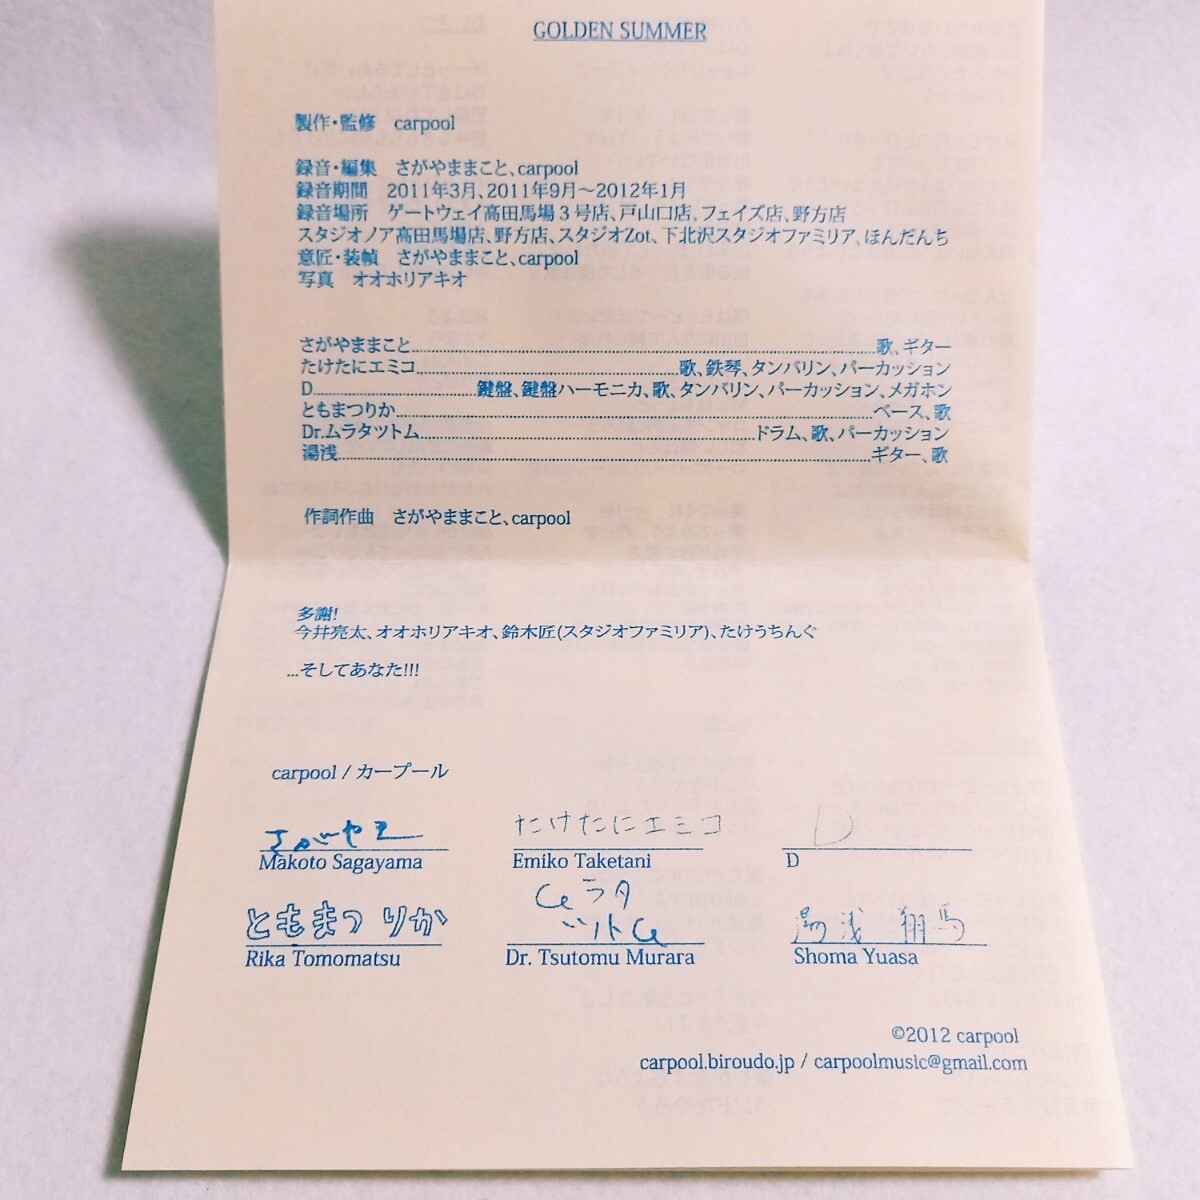 GOLDEN SUMMER
製作・監修　carpool
録音・編集　さがやままこと、carpool
録音期間　2011年3月、2011年9月～2012年1月
録音場所　ゲートウェイ高田馬場３号店、戸山口店、フェイズ店、野方店
スタジオノア高田馬場店、野方店、スタジオZot、下北沢スタジオファミリア、ほんだんち
意匠・装幀　さがやままこと、carpool
写真　オオホリアキオ
さがやままこと........................................歌、ギター
たけたにエミコ........................................歌、鉄琴、タンバリン、パーカッション
D........................................鍵盤、鍵盤ハーモニカ、歌、タンバリン、パーカッション、メガホン
ともまつりか........................................ベース、歌
Dr.ムラタツトム........................................ドラム、歌、パーカッション
湯浅........................................ギター、歌
作詞作曲　さがやままこと、carpool
多謝!
今井亮太、オオホリアキオ、鈴木匠(スタジオファミリア)、たけうちんぐ
...そしてあなた!!!
carpool / カープール
さがやま　たけたにエミコ　D
Makoto Sagayama　Emiko Taketani　D
ともまつりか　ムラタ
ツトム　湯浅 翔馬
Rika Tomomatsu　Dr. Tsutomu Murara　Shoma Yuasa
©2012 carpool
carpool.biroudo.jp / carpoolmusic@gmail.com